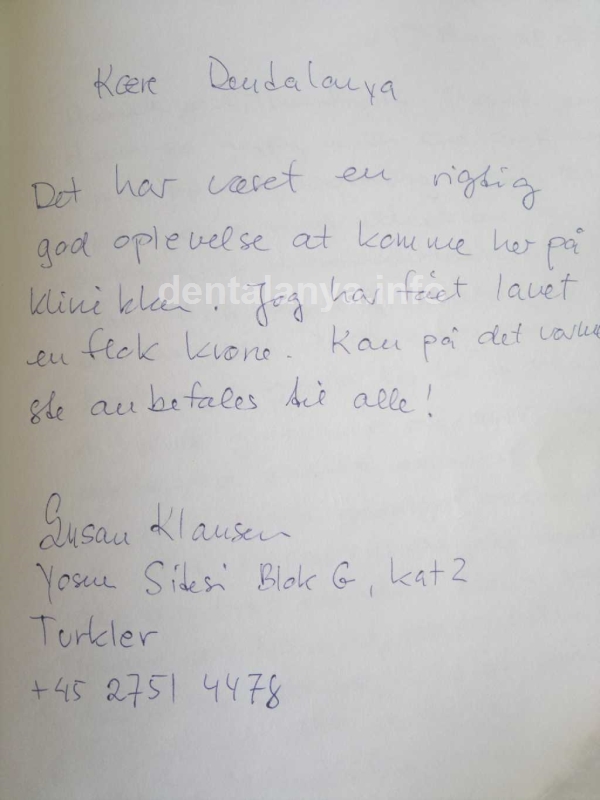 Kære Dendalanya
Det har været en rigtig
god oplevelse at komme her på
klinikken. Jeg har fået lavet
dentalanya.info
en flok krone. Kan på det varme
ste anbefales til alle!
Susan Klausen
Yosun Sitesi Blok G, kat 2
Turkler
+45 2751 4478